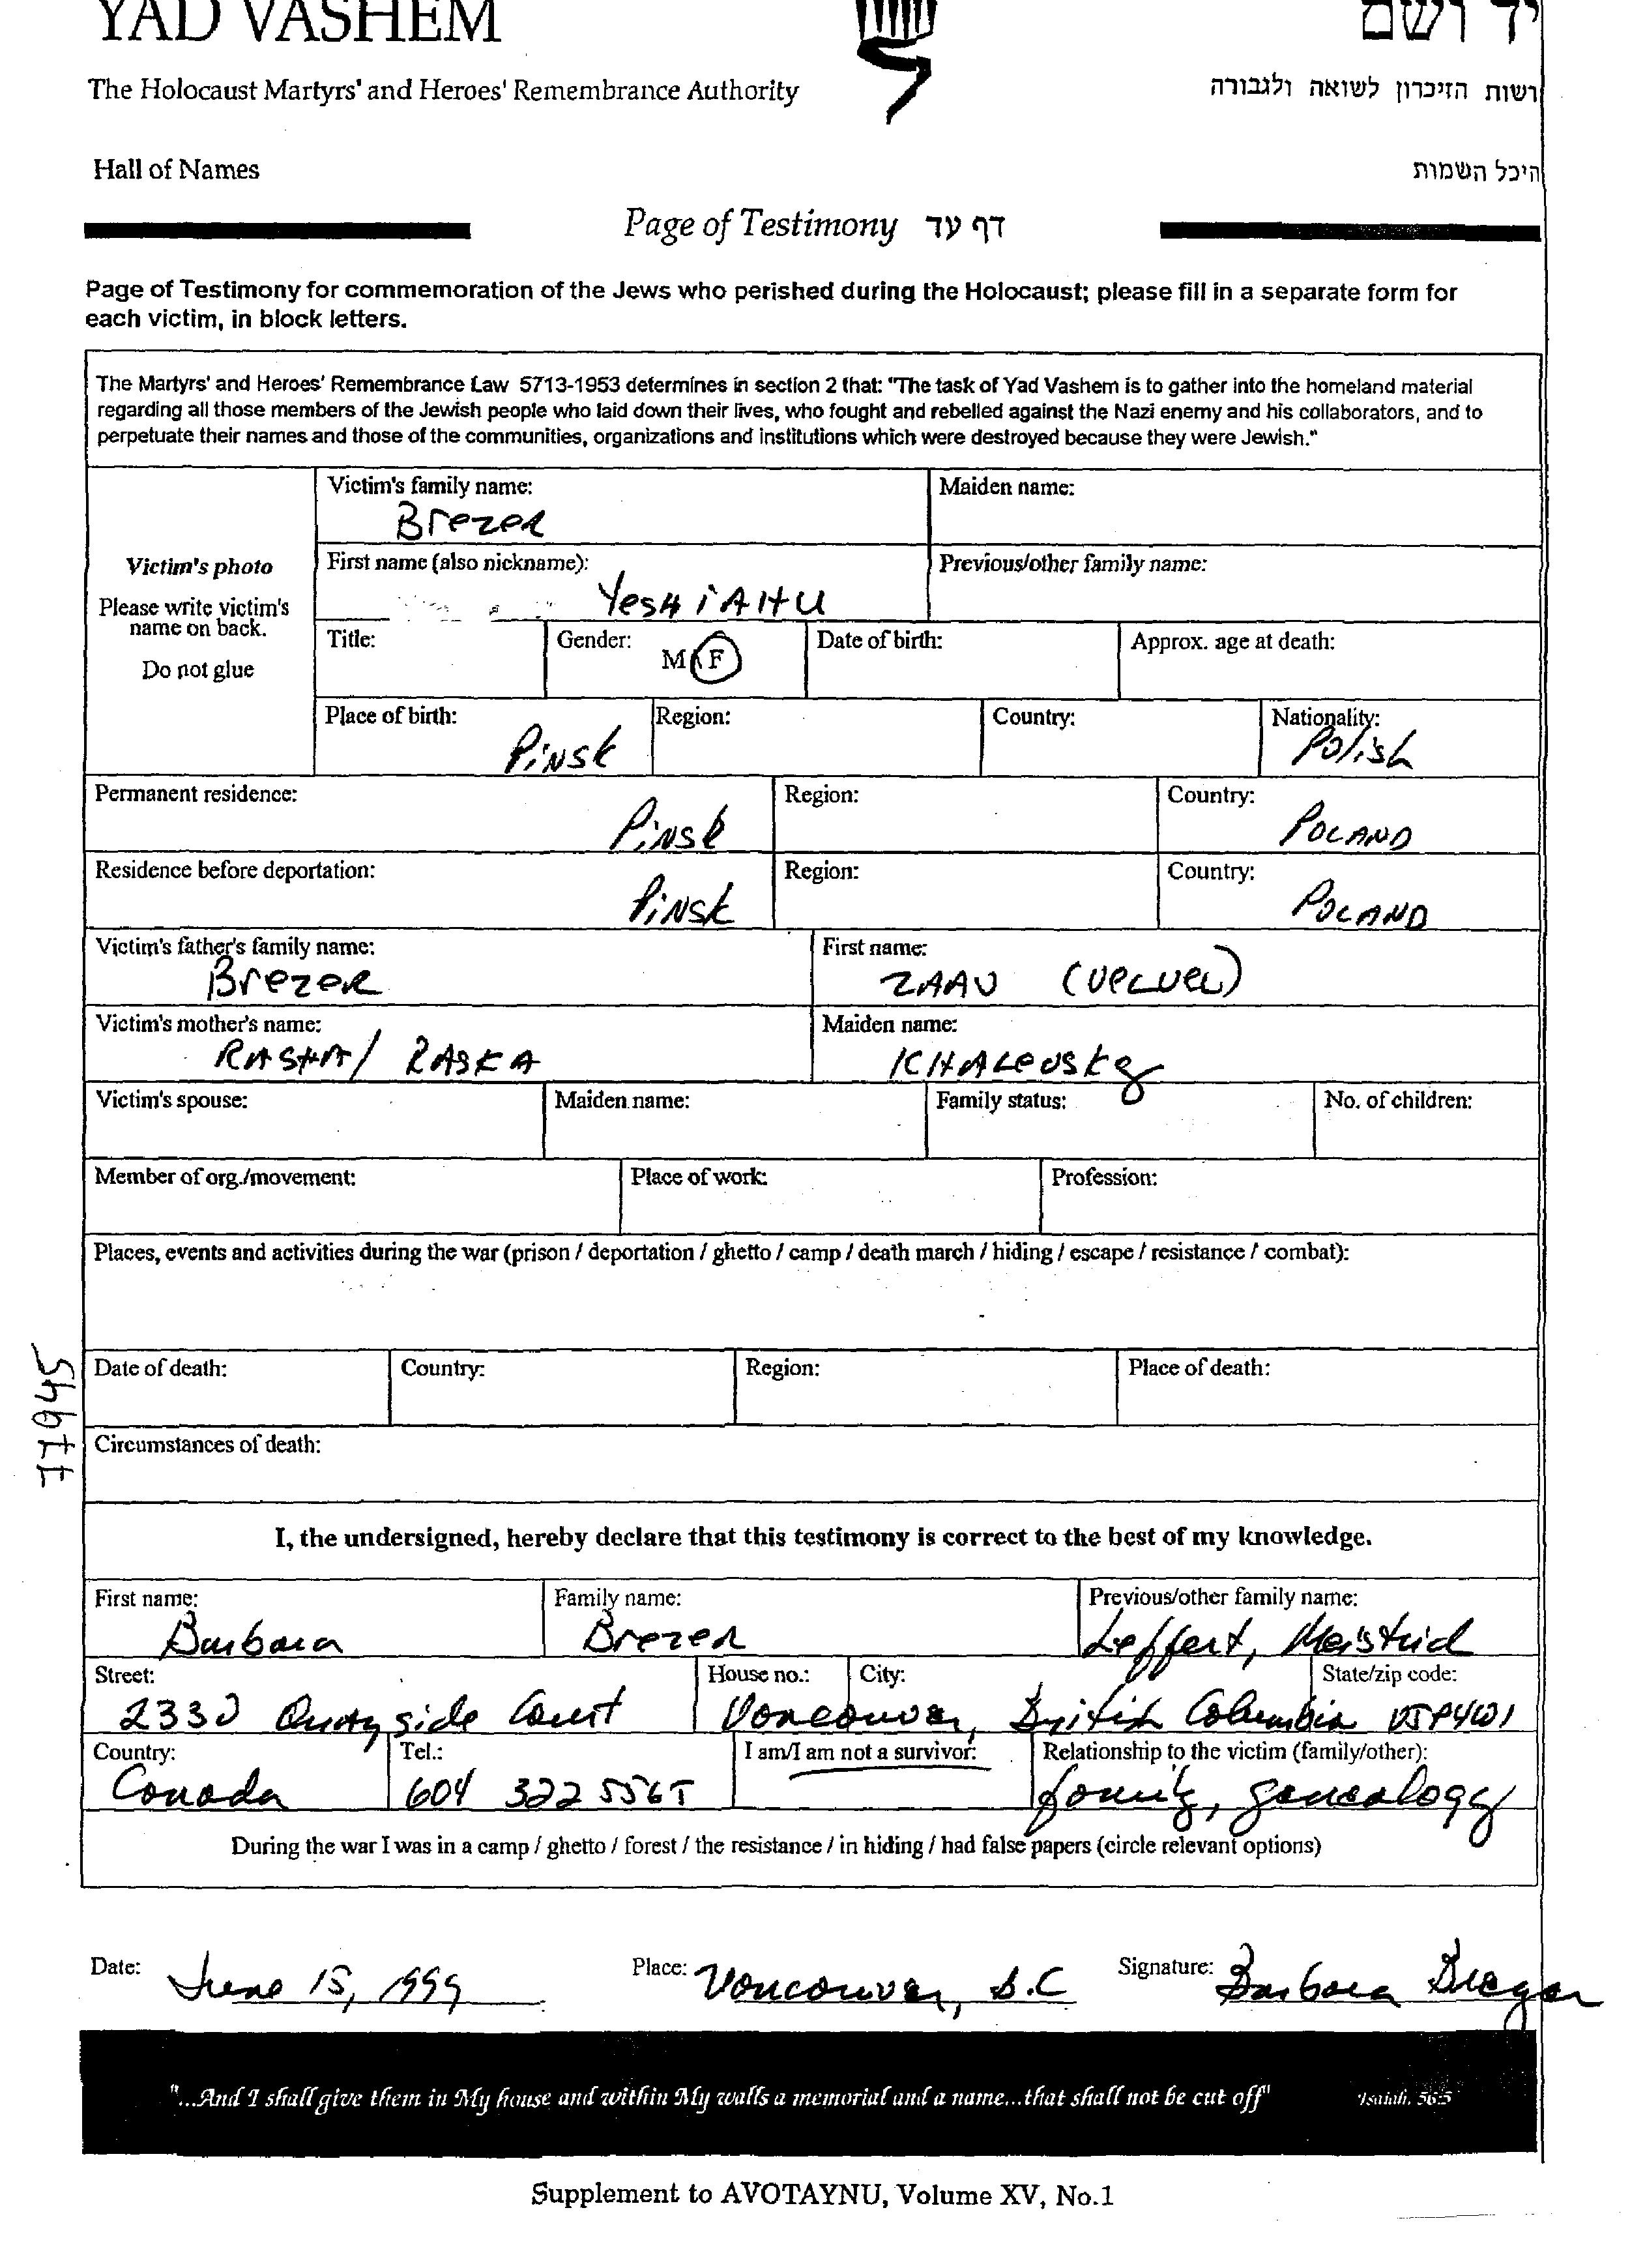 YAD VASHEM
יד ושם
The Holocaust Martyrs' and Heroes' Remembrance Authority
רשות הזיכרון לשואה ולגבורה
Hall of Names
היכל השמות
Page of Testimony דף עד
Page of Testimony for commemoration of the Jews who perished during the Holocaust; please fill in a separate form for
each victim, in block letters.
The Martyrs' and Heroes' Remembrance Law 5713-1953 determines in section 2 that: "The task of Yad Vashem is to gather into the homeland material
regarding all those members of the Jewish people who laid down their lives, who fought and rebelled against the Nazi enemy and his collaborators, and to
perpetuate their names and those of the communities, organizations and institutions which were destroyed because they were Jewish."
Victim's photo
Please write victim's
name on back.
Do not glue
Victim's family name: Maiden name:
Brezer
First name (also nickname): Previous/other family name:
YesHiAHU
Title: Gender: M F Date of birth: Approx. age at death:
Place of birth: Region: Country: Nationality:
Pinsk Polish
Permanent residence: Region: Country:
Pinsk POLAND
Residence before deportation: Region: Country:
Pinsk POLAND
Victim's father's family name: First name:
Brezer ZAAV (VELVEL)
Victim's mother's name: Maiden name:
RASHA/ RASKA KHALEVSKY
Victim's spouse: Maiden name: Family status: No. of children:
Member of org./movement: Place of work: Profession:
Places, events and activities during the war (prison / deportation / ghetto / camp / death march / hiding / escape / resistance / combat):
Date of death: Country: Region: Place of death:
77945
Circumstances of death:
I, the undersigned, hereby declare that this testimony is correct to the best of my knowledge.
First name: Family name: Previous/other family name:
Barbara Brezer Leffert, Meistrid
Street: House no.: City: State/zip code:
2330 Court Vancouver, British Columbia V5P4W1
Country: Tel.: I am/I am not a survivor: Relationship to the victim (family/other):
Canada 604 322 5565 family, genealogy
During the war I was in a camp / ghetto / forest / the resistance / in hiding / had false papers (circle relevant options)
Date: June 15, 1999 Place: Vancouver, B.C Signature: Barbara Brezer
"...And I shall give them in My house and within My walls a memorial and a name...that shall not be cut off" Isaiah, 56:5
Supplement to AVOTAYNU, Volume XV, No.1